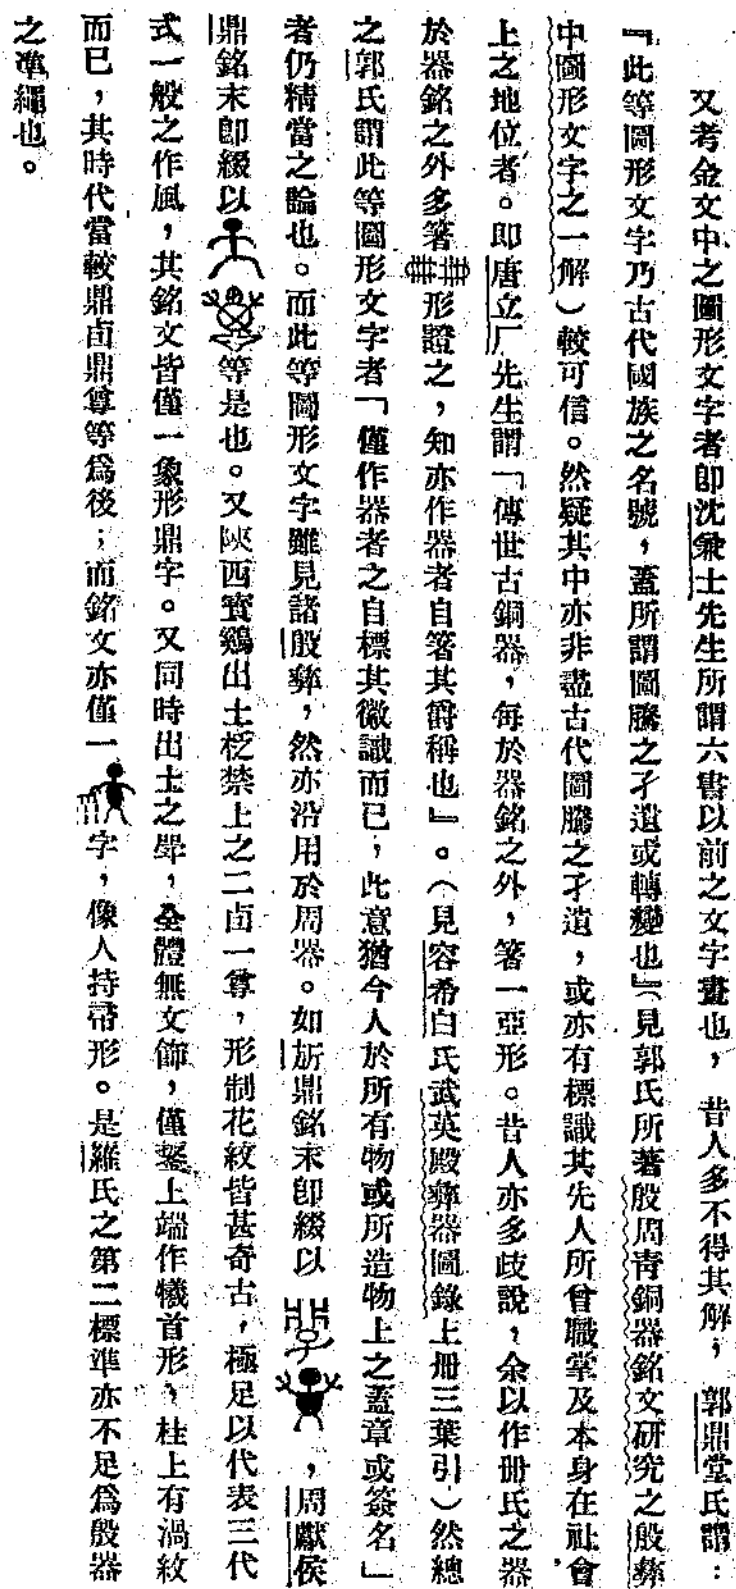 又考金文中之圖形文字者卽沈兼士先生所謂六書以前之文字畫也，昔人多不得其解，郭鼎堂氏謂：
『此等圖形文字乃古代國族之名號，蓋所謂圖騰之孑遺或轉變也』（見郭氏所著殷周靑銅器銘文硏究之殷彝
中圖形文字之一解）較可信。然疑其中亦非盡古代圖騰之孑遺，或亦有標識其先人所曾職掌及本身在社會
上之地位者。卽唐立厂先生謂「傳世古銅器，每於器銘之外，箸一亞形。昔人亦多歧說，余以作册氏之器
於器銘之外多箸形證之，知亦作器者自箸其爵稱也』。（見容希白氏武英殿彝器圖錄上册三葉引）然總
之郭氏謂此等圖形文字者「僅作器者之自標其徽識而已，此意猶今人於所有物或所造物上之蓋章或簽名」
者仍精當之論也。而此等圖形文字雖見諸殷彝，然亦沿用於周器。如旂鼎銘末卽綴以，周獻侯
鼎銘末卽綴以等是也。又陝西寶鷄出土柉禁上之二卣一尊，形制花紋皆甚奇古，極足以代表三代
式一般之作風，其銘文皆僅一象形鼎字。又同時出土之斝，全體無文飾，僅鋬上端作犧首形，柱上有渦紋
而已，其時代當較鼎卣鼎尊等爲後；而銘文亦僅一字，像人持帚形。是羅氏之第二標準亦不足爲殷器
之準繩也。